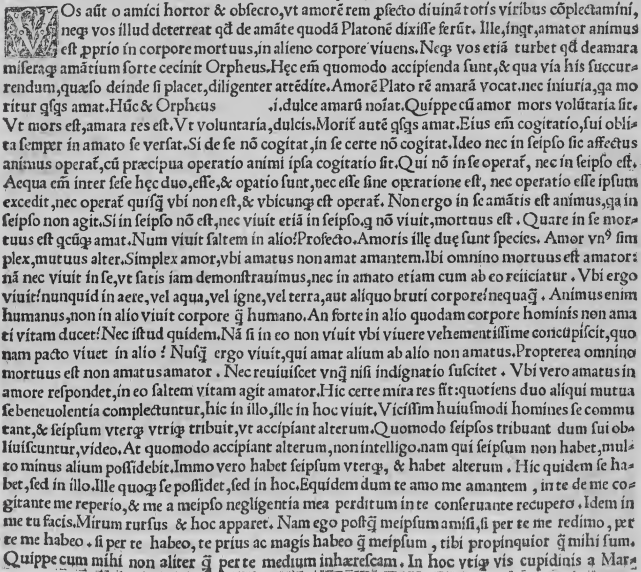 VOs aūt o amici hortor & obsecro, vt amorē rem ꝓfecto diuinā totis viribus cōplectamini,
neqȝ vos illud deterreat qd̄ de amāte quodā Platonē dixisse ferūt. Ille, inqt, amator animus
est ꝓprio in corpore mortuus, in alieno corpore viuens. Neqȝ vos etiā turbet qd̄ de amara
miseraqȝ amātium sorte cecinit Orpheus. Hęc em̄ quomodo accipienda sunt, & qua via his succur-
rendum, quæso deinde si placet, diligenter attēdite. Amorē Plato rē amarā vocat. nec iniuria, qa mo
ritur qsqs amat. Hūc & Orpheus .i. dulce amarū noīat. Quippe cū amor mors volūtaria sit.
Vt mors est, amara res est. Vt voluntaria, dulcis. Morit̄ autē qsqs amat. Eius em̄ cogitatio, sui obli-
ta semper in amato se versat. Si de se nō cogitat, in se certe nō cogitat. Ideo nec in seipso sic affectus
animus operat̄, cū præcipua operatio animi ipsa cogitatio sit. Qui nō in se operat̄, nec in seipso est.
Aequa em̄ inter sese hęc duo, esse, & opatio sunt, nec esse sine operatione est, nec operatio esse ipsum
excedit, nec operat̄ quisq̄ vbi non est, & vbicunqȝ est operat̄. Non ergo in se amātis est animus, qa in
seipso non agit. Si in seipso nō est, nec viuit etiā in seipso. q nō viuit, mortuus est. Quare in se mor-
tuus est qcūqȝ amat. Num viuit saltem in alio? Profecto. Amoris illę duę sunt species. Amor vnꝰ sim
plex, mutuus alter. Simplex amor, vbi amatus non amat amantem. Ibi omnino mortuus est amator:
nā nec viuit in se, vt satis iam demonstrauimus, nec in amato etiam cum ab eo reiiciatur. Vbi ergo
viuit? nunquid in aere, vel aqua, vel igne, vel terra, aut aliquo bruti corpore? nequaq̄. Animus enim
humanus, non in alio viuit corpore q̄ humano. An forte in alio quodam corpore hominis non ama
ti vitam ducet? Nec istud quidem. Nā si in eo non viuit vbi viuere vehementissime concupiscit, quo
nam pacto viuet in alio? Nusq̄ ergo viuit, qui amat alium ab alio non amatus. Propterea omnino
mortuus est non amatus amator. Nec reuiuiscet vnq̄ nisi indignatio suscitet. Vbi vero amatus in
amore respondet, in eo saltem vitam agit amator. Hic certe mira res fit: quotiens duo aliqui mutua
se beneuolentia complectuntur, hic in illo, ille in hoc viuit. Vicissim huiusmodi homines se commu
tant, & seipsum vterqȝ vtriqȝ tribuit, vt accipiant alterum. Quomodo seipsos tribuant dum sui ob-
liuiscuntur, video. At quomodo accipiant alterum, non intelligo. nam qui seipsum non habet, mul-
to minus alium possidebit. Immo vero habet seipsum vterqȝ, & habet alterum. Hic quidem se ha-
bet, sed in illo. Ille quoqȝ se possidet, sed in hoc. Equidem dum te amo me amantem, in te de me co-
gitante me reperio, & me a meipso negligentia mea perditum in te conseruante recupero. Idem in
me tu facis. Mirum rursus & hoc apparet. Nam ego postq̄ meipsum amisi, si per te me redimo, per
te me habeo. si per te habeo, te prius ac magis habeo q̄ meipsum, tibi propinquior q̄ mihi sum.
Quippe cum mihi non aliter q̄ per te medium inhærescam. In hoc vtiqȝ vis cupidinis a Mar-